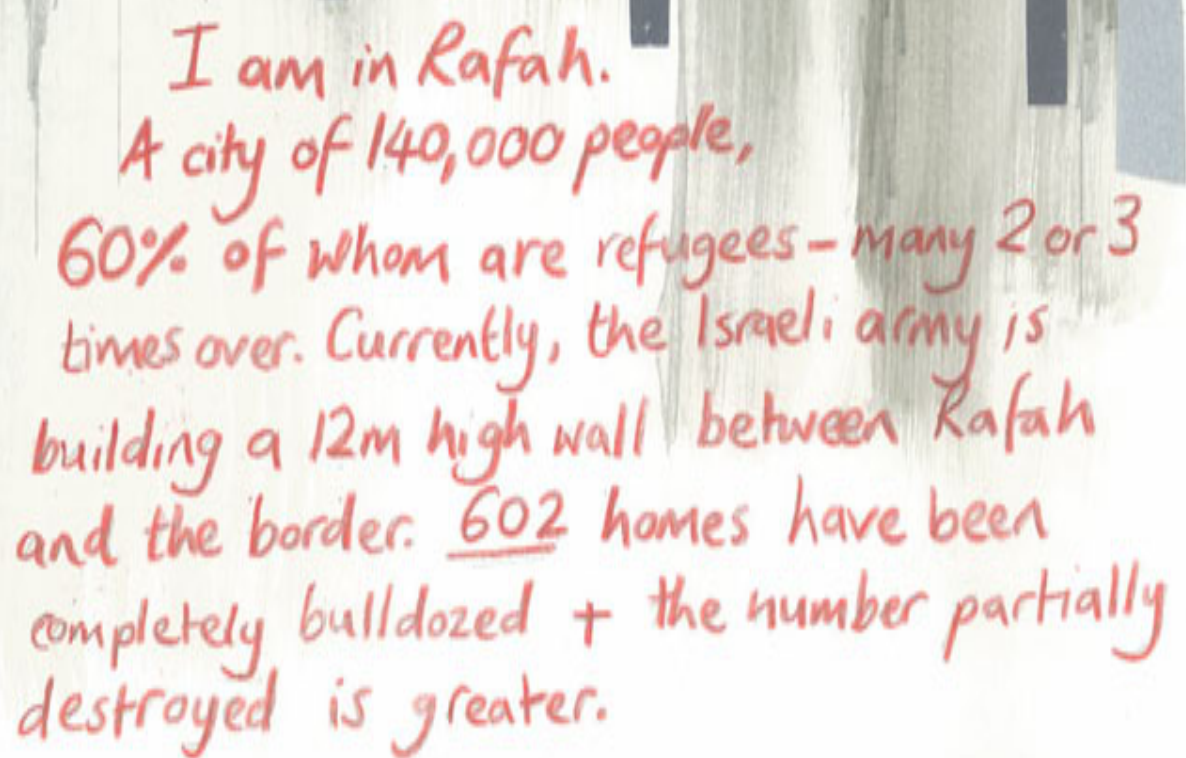 I am in Rafah.
A city of 140,000 people,
60% of whom are refugees – many 2 or 3
times over. Currently, the Israeli army is
building a 12m high wall between Rafah
and the border. 602 homes have been
completely bulldozed + the number partially
destroyed is greater.